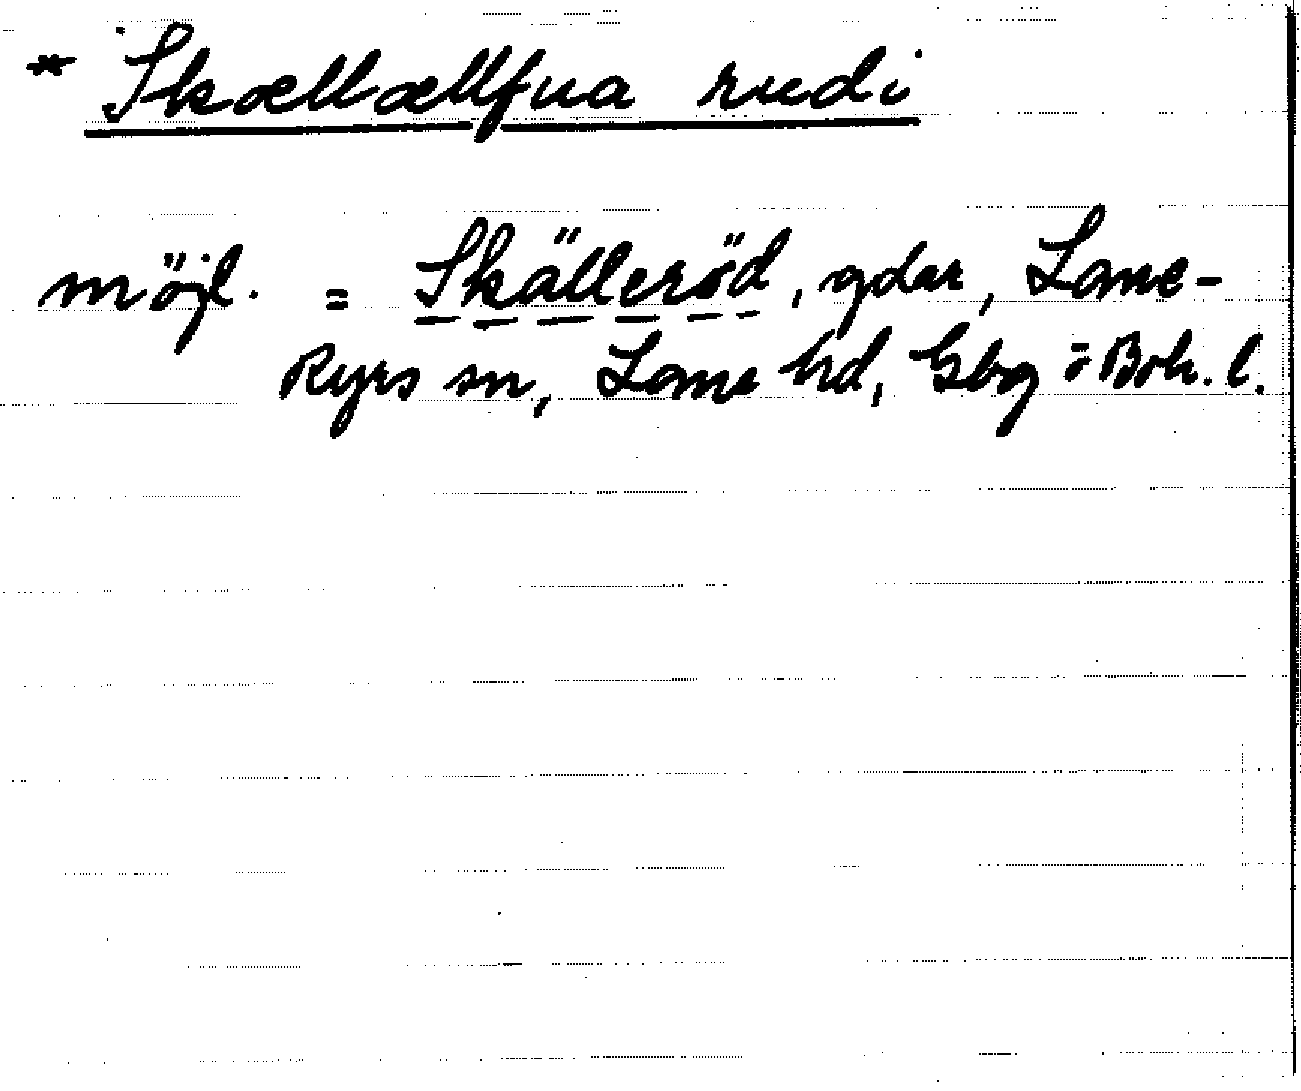 * Skællællfua rudi
möjl. = Skälleröd, gdar, Lane-
Ryrs sn, Lane hd, Gbg o Boh. l.